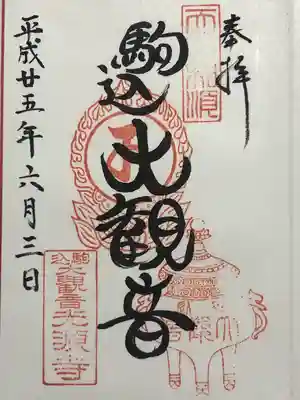 奉拝
駒込大観音
平成廿五年六月三日
駒込
大観音光源寺